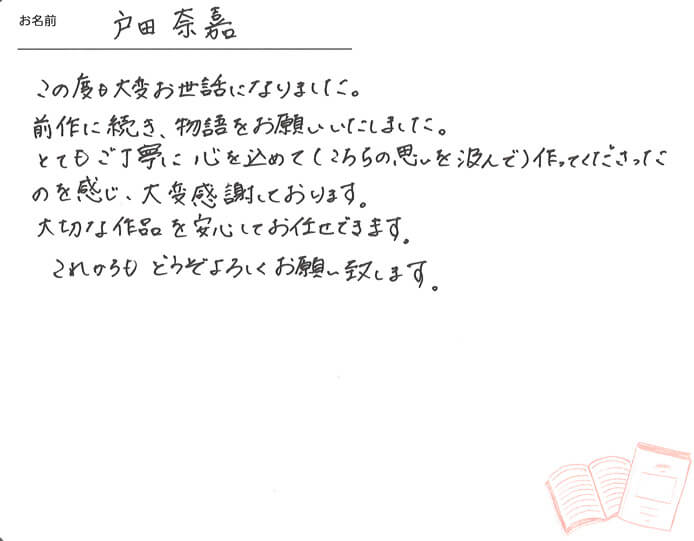 お名前 戸田 奈嘉
この度も大変お世話になりました。
前作に続き、物語をお願いいたしました。
とてもご丁寧に心を込めて(こちらの思いを汲んで)作ってくださった
のを感じ、大変感謝しております。
大切な作品を安心してお任せできます。
これからも どうぞよろしくお願い致します。